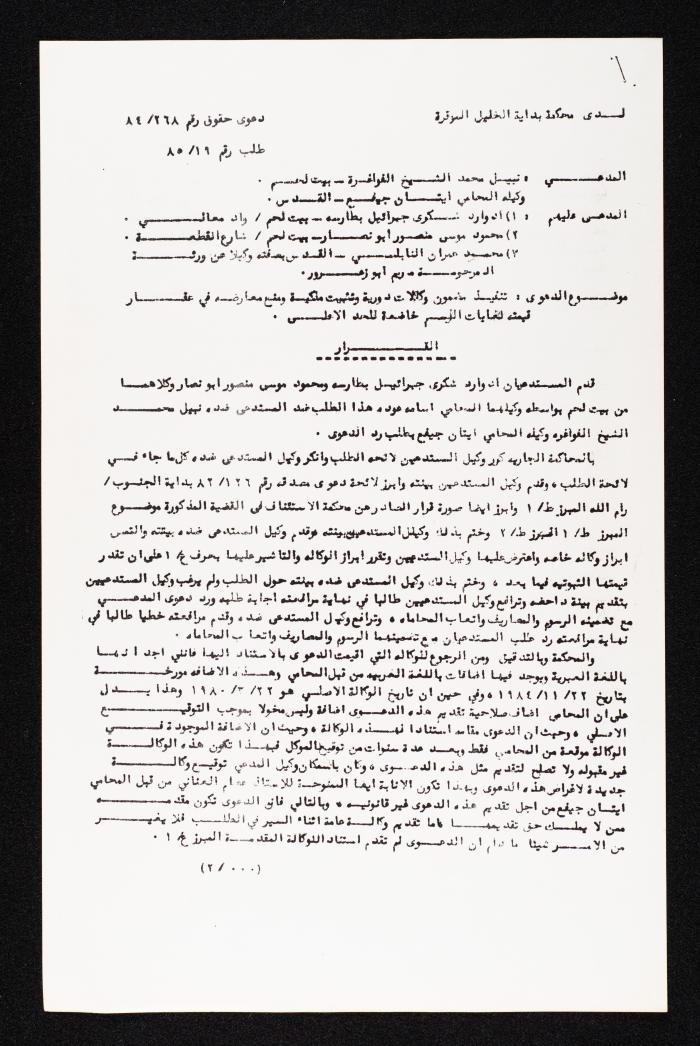 لدى محكمة بداية الخليل الموقرة
دعوى حقوق رقم ٨٤/٢٦٨
طلب رقم ٨٥/١٩
المدعي : نبيل محمد الشيخ الفواغرة - بيت لحم .
وكيله المحامي ايتان جيفع - القدس .
المدعى عليهم : ١) ادوارد شكرى جبرائيل بطارسه - بيت لحم / واد معالي .
٢) محمود موسى منصور ابو نصار - بيت لحم / شارع القطعة .
٣) محمد عمران النابلسي - القدس بصفته وكيلا عن ورثة
المرحومة مريم ابو زعرور .
موضوع الدعوى : تنفيذ مضمون وكالات دورية وتثبيت ملكية ومنع معارضه في عقار
قيمته لغايات الرسم خاضعة للحد الاعلى .
القرار
قدم المستدعيان ادوارد شكرى جبرائيل بطارسه ومحمود موسى منصور ابو نصار وكلاهما
من بيت لحم بواسطه وكيلهما المحامي اسامه عوده هذا الطلب ضد المستدعى ضده نبيل محمد
الشيخ الفواغره وكيله المحامي ايتان جيفع بطلب رد الدعوى .
بالمحاكمة الجاريه كرر وكيل المستدعيين لائحه الطلب وانكر وكيل المستدعى ضده كل ما جاء في
لائحة الطلب ، وقدم وكيل المستدعيين بينته وابرز لائحة دعوى مصدقه رقم ٨٢/١٢٦ بداية الجنوب/
رام الله المبرز ط/١ وابرز ايضا صورة قرار الصادر عن محكمة الاستئناف في القضية المذكورة موضوع
المبرز ط/١ المبرز ط/٢ وختم بذلك وكيل المستدعيين بينته وقدم وكيل المستدعى ضده بينته والتمس
ابراز وكاله خاصه واعترض عليها وكيل المستدعيين وتقرر ابراز الوكاله والتاشير عليها بحرف خ/١ على ان تقدر
قيمتها الثبوتيه فيما بعد ، وختم بذلك وكيل المستدعى ضده بينته حول الطلب ولم يرغب وكيل المستدعيين
بتقديم بينة داحضه وترافع وكيل المستدعيين طالبا في نهاية مرافعته اجابة طلبه ورد دعوى المدعي
مع تضمينه الرسوم والمصاريف واتعاب المحاماه ، وترافع وكيل المستدعى ضده وقدم مرافعته خطيا طالبا في
نهاية مرافعته رد طلب المستدعيان مع تضمينهما الرسوم والمصاريف واتعاب المحاماه .
والمحكمة وبالتدقيق ومن الرجوع للوكاله التي اقيمت الدعوى بالاستناد اليها فانني اجد انها
باللغة العبرية ويوجد فيها اضافات باللغة العربيه من قبل المحامي وهذه الاضافه مورخة
بتاريخ ١٩٨٤/١١/٢٢ ، وفي حين ان تاريخ الوكالة الاصلي هو ١٩٨٠/٣/٢٢ وهذا يدل
على ان المحامي اضاف صلاحية تقديم هذه الدعوى اضافة وليس مخولا بموجب التوقيع
الاصلي ، وحيث ان الدعوى مقامه استنادا لهذه الوكالة ، وحيث ان الاضافة الموجودة في
الوكالة موقعة من المحامي فقط وبعد عدة سنوات من توقيع الموكل فبهذا تكون هذه الوكالة
غير مقبوله ولا تصلح لتقديم مثل هذه الدعوى ، وكان بامكان وكيل المدعي توقيع وكالة
جديدة لاغراض هذه الدعوى وبهذا تكون الانابة ايضا الممنوحة للاستاذ عصام العناني من قبل المحامي
ايتان جيفع من اجل تقديم هذه الدعوى غير قانونيه ، وبالتالي فان الدعوى تكون مقدمه
ممن لا يملك حق تقديمها ، اما تقديم وكالة عامة اثناء السير في الطلب فلا يغير
من الامر شيئا ما دام ان الدعوى لم تقدم استنادا للوكالة المقدمة المبرز خ/١ .
(٢/٠٠٠)